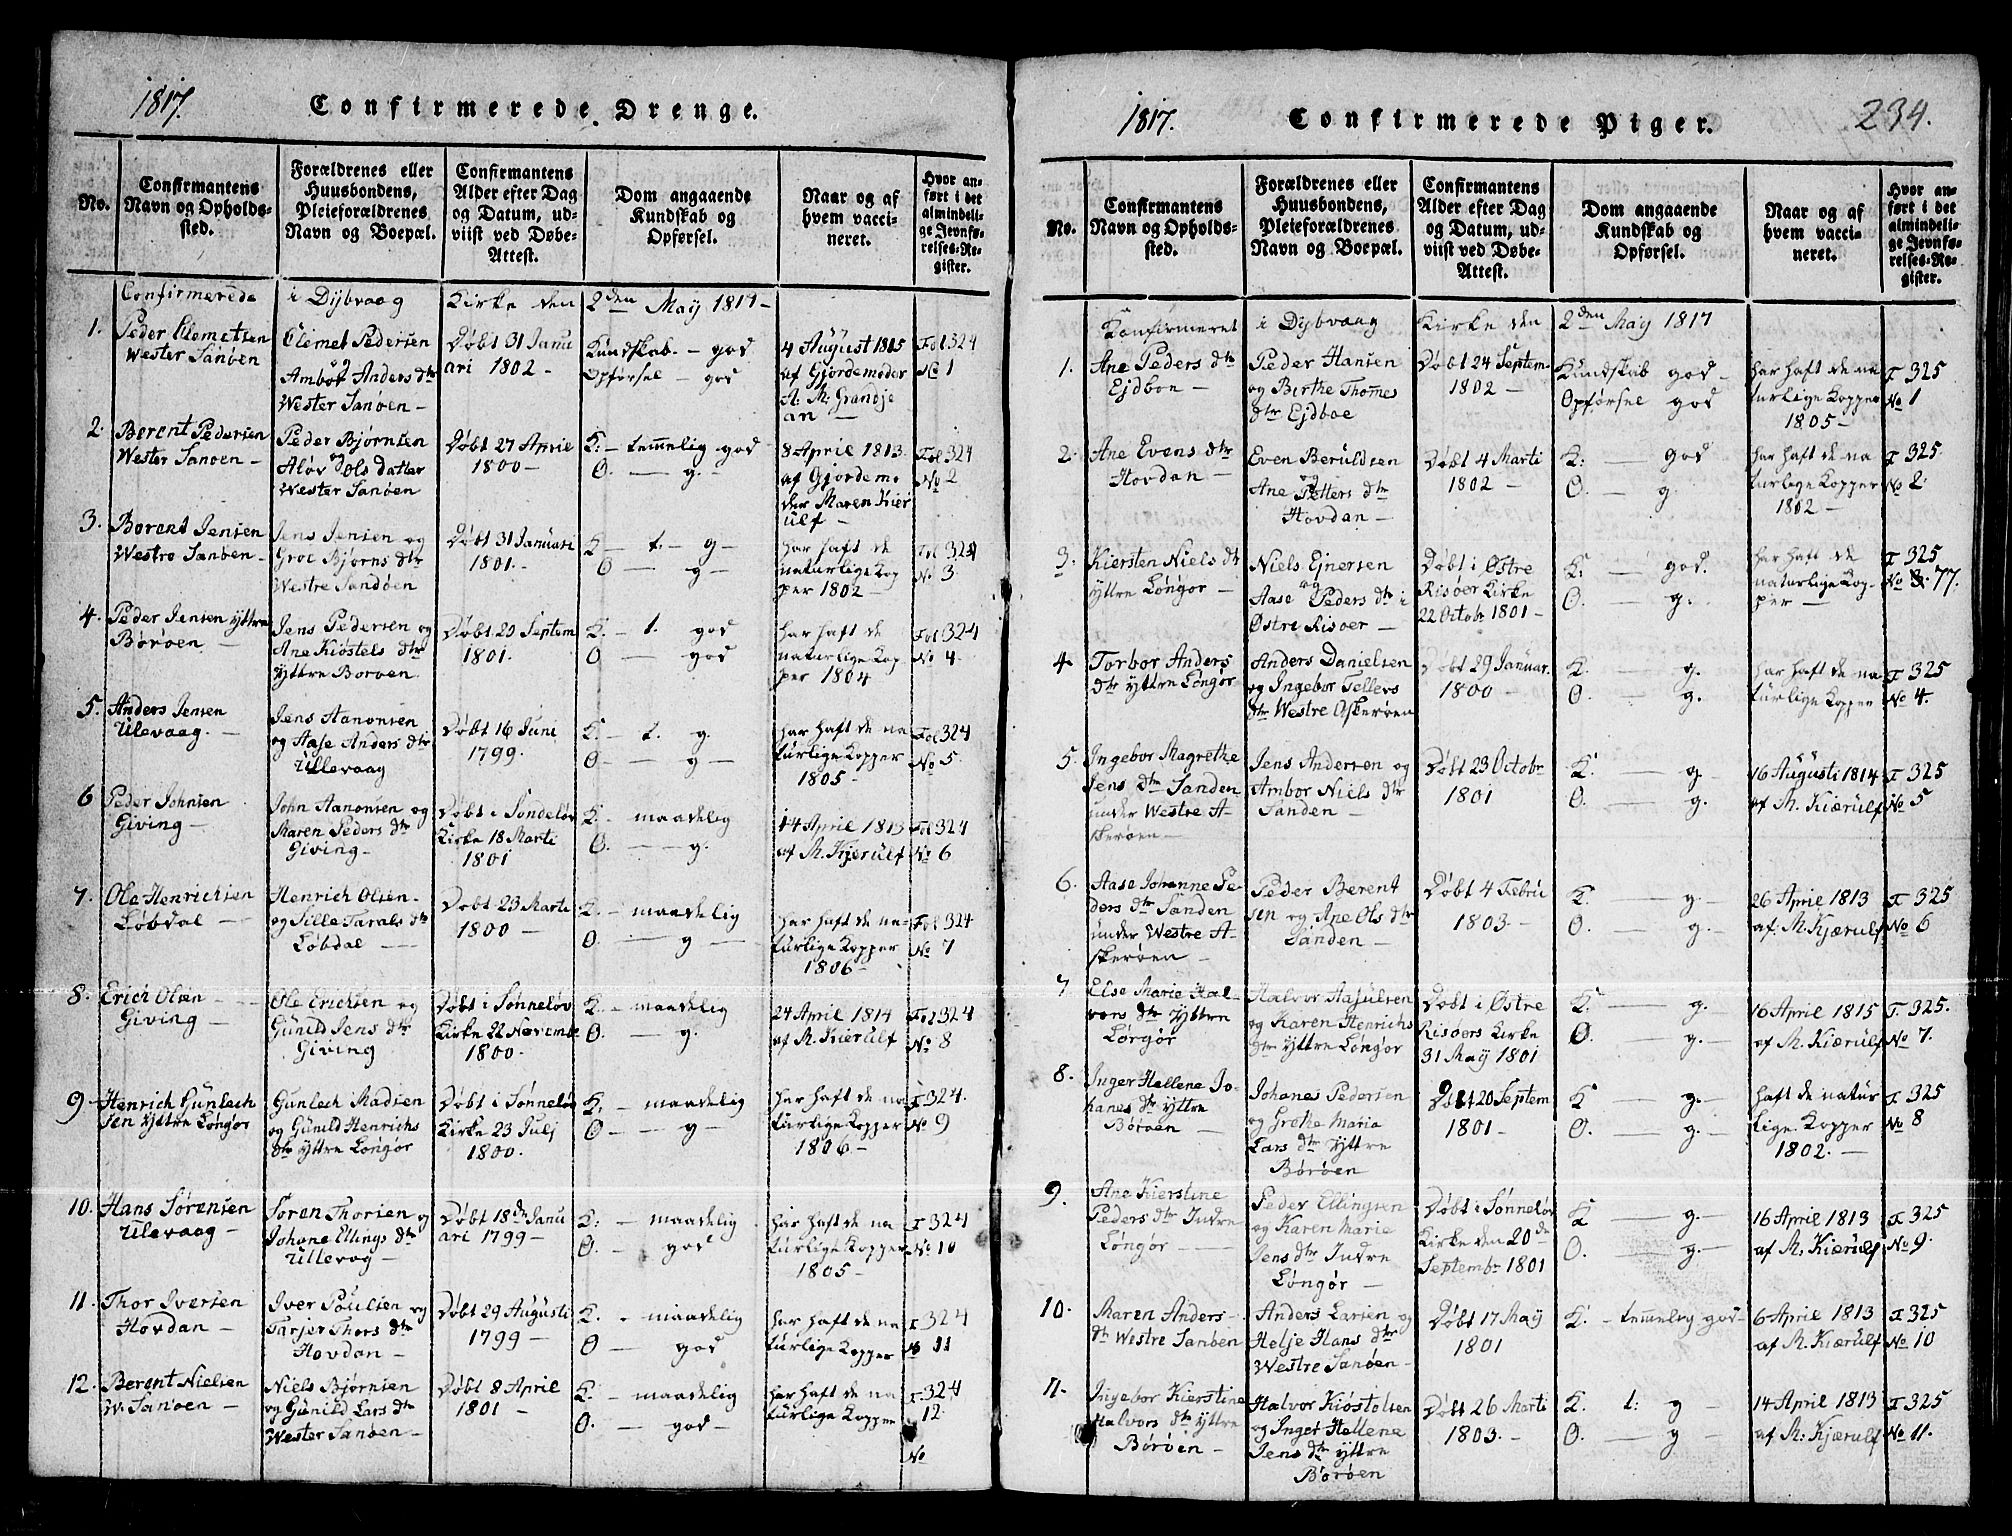 1817.
Confirmerede Drenge.
No.
Confirmantens
Navn og Opholds-
sted.
Forældrenes eller
Huusbondens,
Pleieforældrenes
Navn og Boepæl.
Confirmantens
Alder efter Dag
og Datum, ud-
viist ved Døbe-
Attest.
Dom angaaende
Kundskab og
Opførsel.
Naar og af
hvem vacci-
neret.
Hvor an-
ført i det
almindeli-
ge Jevnfø-
relses-Re-
gister.
Confirmerede i Dijbvaag Kirke den 2den May 1817-
1.
Peder Clemetsen
Wester Sanøen
Clemet Pedersen
og
Ambor Anders dtr
Wester Sanøen-
Døbt 31 Janu
ari 1802-
Kundskab- - god
Opførsel - god
4 August 1815
af Gjordemoder
A: M: Grandje
an -
Fol 324
No 1
2.
Berent Pedersen
Wester Sanoen-
Peder Bjørnsen
og
Aløv Ols datter
Wester Sanøen
Døbt 27 Aprie
1800-
K: - temmelig god
O. - g.-
8 April 1813.
af Gjordemo
der Maren Kier
ulf-
Fol 324
No 2
3.
Berent Jensen
Westre Sanøen-
Jens Jensen og
Groe Bjørns dtr
Westre Sandøen
Døbt 31 Januari
1801.-
K - t. - g-
O - g-
har haft de
naturlige Kop
per 1802-
Fol 324
No 3
4.
Peder Jensen Yttre
Børøen -
Jens Pedersen og
Ane Kiøstels dtr
Yttre Børøen
Døbt 29 Septem
1801.
K. - t. god
O - god
har haft de
naturlige Kop
per 1804
Fol 324
No 4.
5.
Anders Jensen
Ulevaag.-
Jens Aanonsen
og Aase Anders dtr
Ullevaag
Døbt 16 Juni
1799.-
K. - t. g.
O. - g-
har haft de na
turlige Kopper
1805-
Fol 324
No 5.
6
Peder Johnsen
Giving-
John Aanonsen og
Maren Peders dtr
Giving-
Døbt i Søndeløv
Kirke 18 Marti
1801
K. - maadelig
O. - g.
14 April 1813
af M. Kjerulf
Fol 324
No 6
7.
Ole Henrichsen
Løbdal -
Henrich Olsen-
og Sille Tarals dtr
Løbdal -
Døbt 23 Marti
1800-
K. - maadelig
O. - g-
har haft de na-
turlige Kopper
1806-
Fol 324
No 7
8.
Erich Olsen -
Giving-
Ole Erichsen og
Gunild Jens dtr
Giving
Døbt i Sønneløv
Kirke 22 Novemb
1800.
K. - maadelig
O. - g.
24 April 1814
af M. Kierulf
Fol 324
No 8
9-
Henrich Gunlech
sen Yttre Løngør
Gunlech Madsen
og Gunild Henrichs
dtr Yttre Løngør
Døbt i Sønneløv
Kirke 23 Julj
1800.
K. - maadelig
O - g-
har haft de na
turlige Kopper
1806-
F 324.
No 9
10.
Hans Sørensen
Ulevaag-
Søren Thorsen og
Johane Ellings dtr
Ullevog-
Døbt 18de Janu
ari 1799-
K: - maadelig
O. - god
har haft de na
turlige Kopper
1805-
F 324
No 10
11.
Thor Iversen
Hovdan-
Iver Poulsen og
Tarjer Thors dtr
Hovdan-
Døbt 29 Augusti
1799-
K. - maadelig
O - god
har haft de na
turlige Kopper
F 324
No 11
12.
Berent Nielsen
W. Sanøen-
Niels Bjørnsen
og Gunild Lars dtr
Wester Sanøen-
Døbt 8 April
1801-
K. - maadelig
O. - god-
har haft de na
turlige Kopper
F 324
12.
No
1817.
Confirmerede Piger.
234.
No.
Confirmantens
Navn og Opholds-
sted.
Forældrenes eller
Huusbondens,
Pleieforældrenes
Navn og Boepæl.
Confirmantens
Alder efter Dag
og Datum, ud-
viist ved Døbe-
Attest.
Dom angaaende
Kundskab og
Opførsel.
Naar og af
hvem vacci-
neret.
Hvor an-
ført i det
almindeli-
ge Jevnfø-
relses-Re-
gister.
Konfirmeret i Dijbvaag Kirke den 2den May 1817
1.
Ane Peders dtr
Ejdboe-
Peder Hansen
og Birthe Thomes
dtr Ejdboe
Døbt 24 Septem-
1802-
Kundskab god-
Opførsel god
har haft de na
turlige Kopper
1805-
F 325
No 1
2.
Ane Evens dtr
Hovdan-
Even Beruldsen
og
Ane Petters dtr
Hovdan-
Døbt 4 Marti
1802-
K: - god
O. - g.
har haft de na
turlige Kopper
1802-
F 325.
No 2.
3.
Kiersten Niels dtr
Yttre Løngør-
Niels Ejnersen
og
Aase Peders dtr i
Østre Risoer-
Døbt i Østre
Risøer Kirke
22 Octobr 1801-
K: - god.
O. - g.
har haft de
naturlige Kop-
per-
F 325
No 77.
4-
Torbor Anders
dtr Yttre Løngør
Anders Danielsen
og Ingebor Tellevs
dtr Westre Askerøen
Døbt 29 Januar.
1800-
K. - g.
O. - g.
har haft de na
turlige Kopper
F 325
No 4.
5.
Ingebor Magrethe
Jens dtr Sanden
under Westre A-
skerøen-
Jens Andersen og
Ambor Niels dtr
Sanden-
Døbt 23 Octobr
1801
K. - g.-
O. - g.
16 Augusti 1814
af M. Kiærulf
F 325
No 5
6.
Aase Johanne Pe-
ders dtr Sanden
under Westre A-
skerøen-
Peder Berent
sen og Ane Ols dtr
Sanden-
Døbt 4 Febru
1803-
K. - g.-
O. - g.
26 April 1813
af: M. Kjærulf
F 325
No 6
7
Else Marie Hal-
vors dtr Yttre
Løngør
Halvor Aasulsen
og Karen Henrichs
dtr Yttre Løngør
Døbt i Østre
Risøers Kirke
31 May 1801
K. - g.
O. - g.-
16 April 1815
af M. Kiærulf
F. 325.
No 7.
8.
Inger Hellene Jo-
hanes dtr Yttre
Børøen-
Johanes Pedersen
og Grethe Maria
Lars dtr Yttre
Børøen
Døbt 20 Septem
1801-
K - g.-
O. - g.-
haft de natur
lige Kopper
1802.-
F 325
No 8
9.
Ane Kierstine
Peders dtr Indre
Løngør-
Peder Ellingsen
og Karen Marie
Jens dtr Indre
Løngør-
Døbt i Sønneløv
Kirke den 20de
Septembr 1801
K - g.-
O. - g.-
16 April 1813
af M. Kiærulf
F 325
No 9.
10.
Maren Anders-
dtr Westre Sanøen
Anders Larsen og
Helje Hans dtr
Westre Sanøen-
Døbt 17 May
1801
K: - temmelig god-
6 April 1813
af M. Kiærulf
F 325
No 10
11.
Ingebor Kierstine
Halvors dtr Yttre
Børøen-
Halvor Kiøstølsen
og Inger Hellene
Jens dtr Yttre
Børøen
Døbt 26 Marti
1803.-
K. t: g-
O. - g-
14 April 1813
af M: Kjærulf
F 325
No 11.